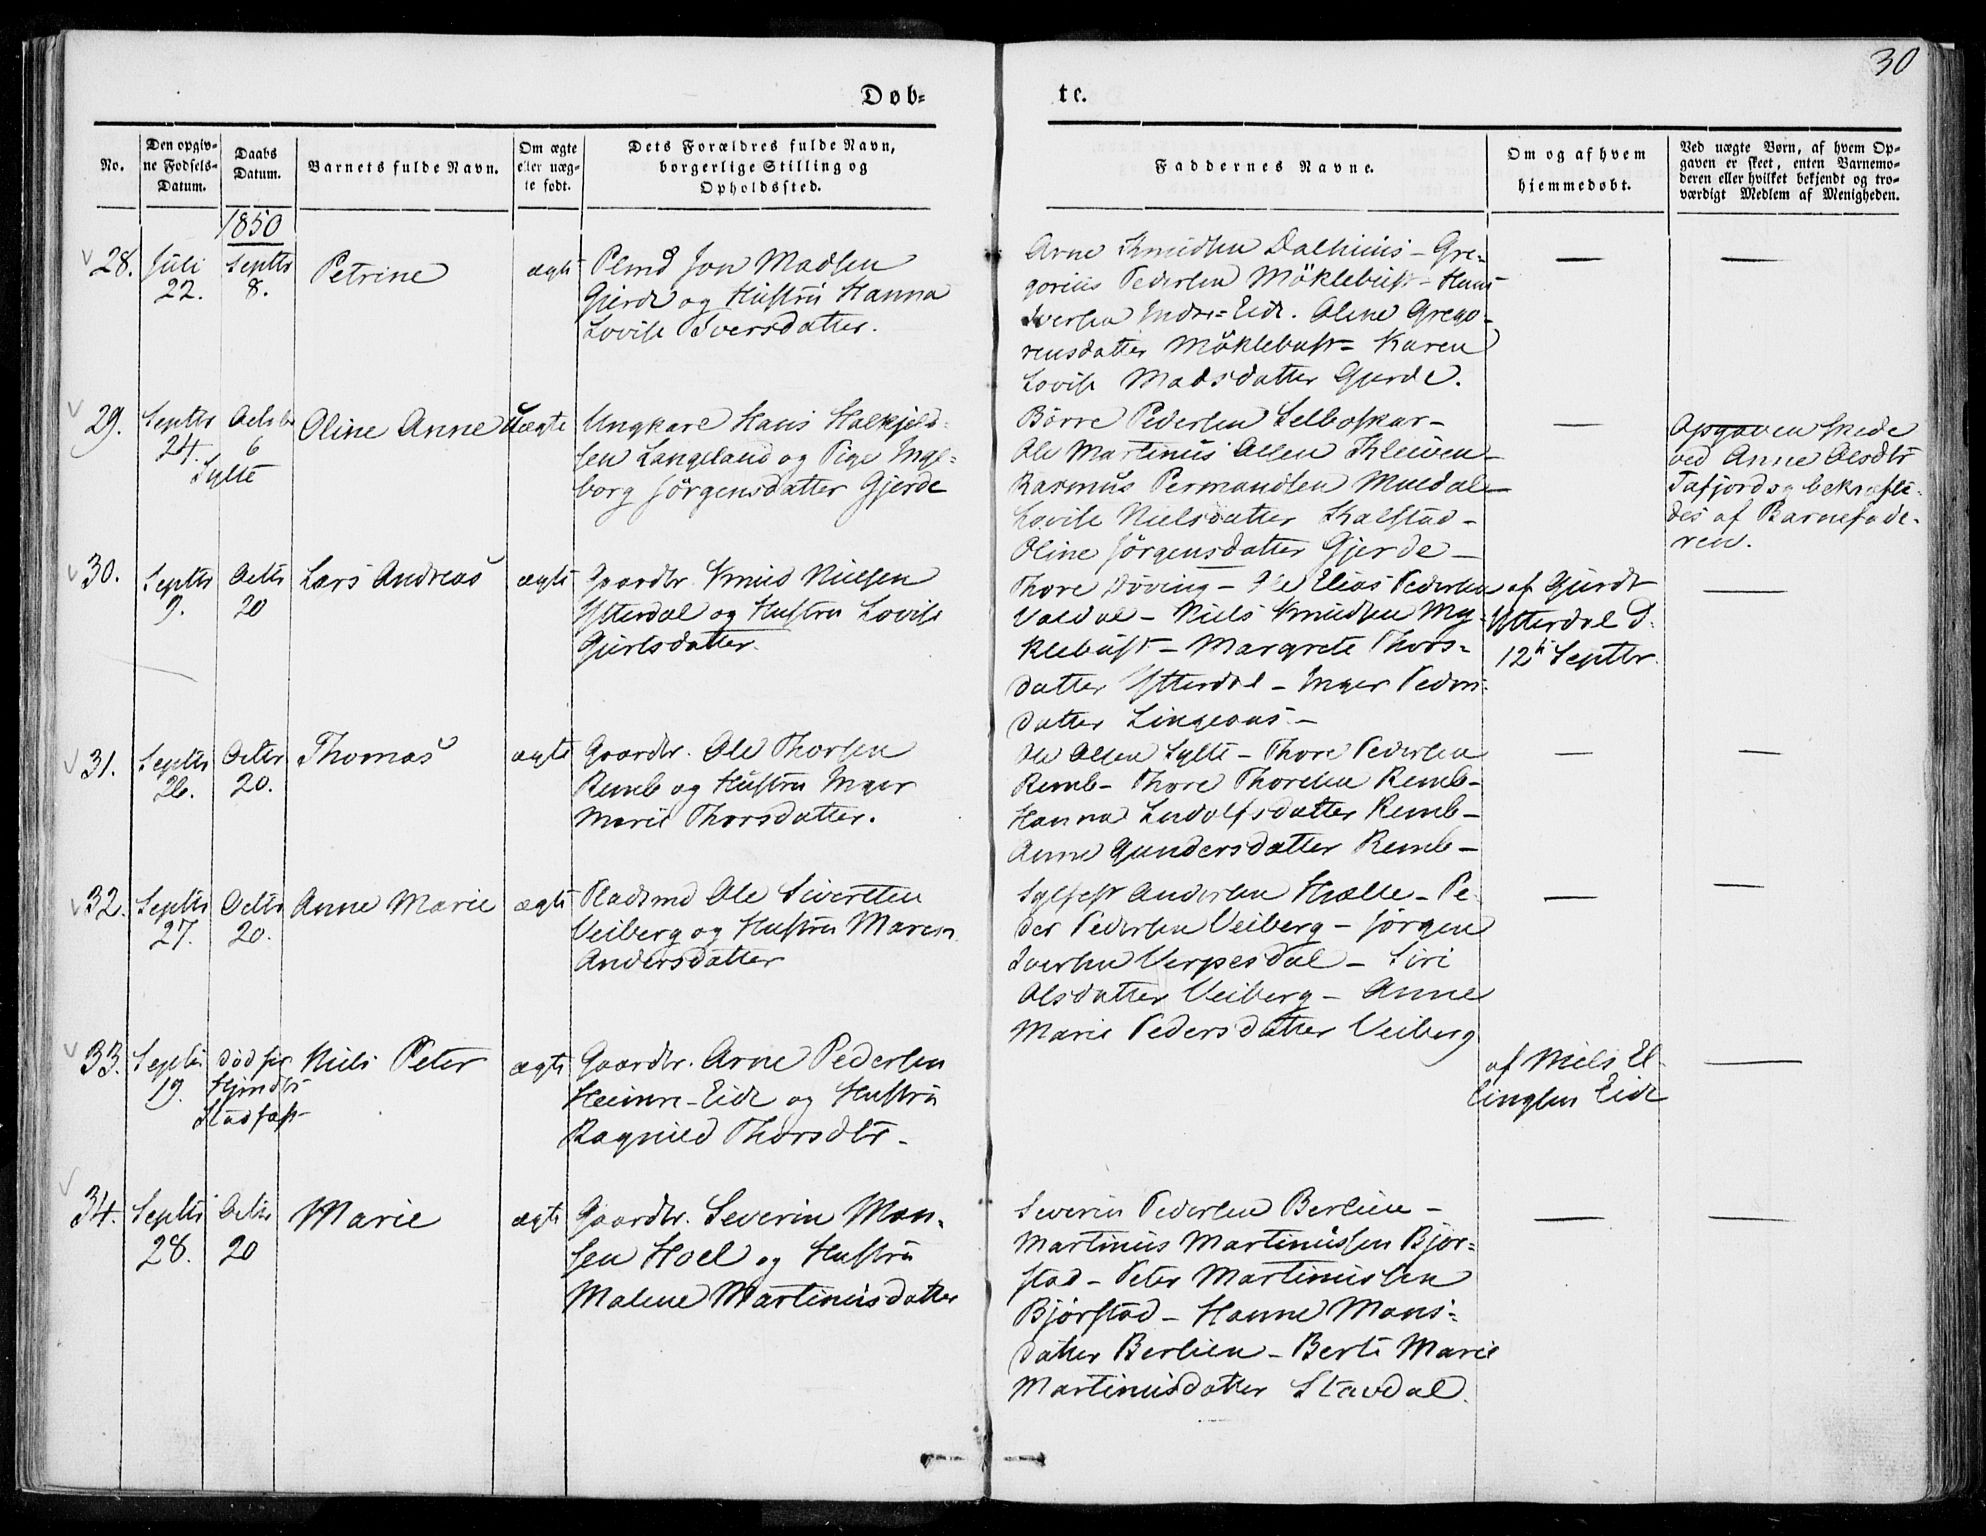 30
Døb-
te.
No.
Den opgiv-
ne Fødsels-
Datum.
Daabs
Datum.
Barnets fulde Navn.
Om ægte
eller uæg-
te født.
Dets Forældres fulde Navn,
borgerlige Stilling og
Opholdssted.
Faddernes Navne.
Om og af hvem
hjemmedøbt.
Ved uægte Børn, af hvem Op-
gaven er skeet, enten Barnemo-
deren eller hvilket bekjendt og tro-
værdigt Medlem af Menigheden.
1850
28.
Juli
22.
Septbr
8.
Petrine
ægte
Plmd Jon Madsen
Gjerde og Hustru Hanna
Lovise Iversdatter.
Arne Knudsen Dalhuus - Gre-
gorius Pedersen Möklebust - Hans
Iversen Indre-Eide. Oline Grego-
riusdatter Möklebust - Karen
Lovise Madsdatter Gjerde.
—
—
29.
Septbr
24.
Octobr
6
Sylte
Oline Anne
Uægte
Ungkarl Hans Halkjelds-
sen Langeland og Pige Inge-
borg Jörgensdatter Gjerde
Börre Pedersen Selboskar -
Ole Martinus Olsen Kleiven -
Rasmus Permandsen Muldal -
Lovise Nielsdatter Kalstad -
Oline Jörgensdatter Gjerde -
—
Opgaven skede
ved Anne Olsdtr
Tafjord og bekræfte-
des af Barnefade-
ren.
30.
Septbr
9.
Octbr
20
Lars Andreas
ægte
Gaardbr. Knud Nielsen
Ytterdal og Hustru Lovise
Gjertsdatter.
Thore Döving - Ole Elias Pedersen
Valdal - Niels Knudsen My-
klebust - Margrete Thors-
datter Ytterdal - Inger Peders-
datter Lingeaas -
af Gjerdt
Ytterdal d.
12te Septbr.
—
31.
Septbr
26.
Octbr
20.
Thomas
ægte
Gaardbr. Ole Thorsen
Remb og Hustru Inger
Marie Thorsdatter.
Ole Olsen Sylte - Thore Pedersen
Remb - Thore Thoresen Remb -
Hanna Ludolfsdatter Remb -
Anne Gundersdatter Remb -
—
—
32.
Septbr
27.
Octbr
20.
Anne Marie
ægte
Pladsmd Ole Sivertsen
Veiberg og Hustru Maren
Andersdatter
Sylfest Andersen Hælle - Pe-
der Pedersen Veiberg - Jörgen
Iversen Verpesdal - Siri
Olsdatter Veiberg - Anne
Marie Pedersdatter Veiberg
—
—
33.
Septbr
19.
död för
Hjemdbs
Stadfæst
Niels Peter
ægte
Gaardbr. Arne Pedersen
Heimre-Eide og Hustru
Ragnild Thorsdtr -
af Niels El-
lingsen Eide
—
34.
Septbr
28.
Octbr
20
Marie
ægte
Gaardbr. Severin Mon-
sen Hoel og Hustru
Malene Martinusdatter
Severin Pedersen Berlien -
Martinus Martinussen Bjør-
stad - Peter Martinussen
Bjørstad - Hanne Mons-
datter Berlien - Berte Marie
Martinusdatter Stavdal.
—
—